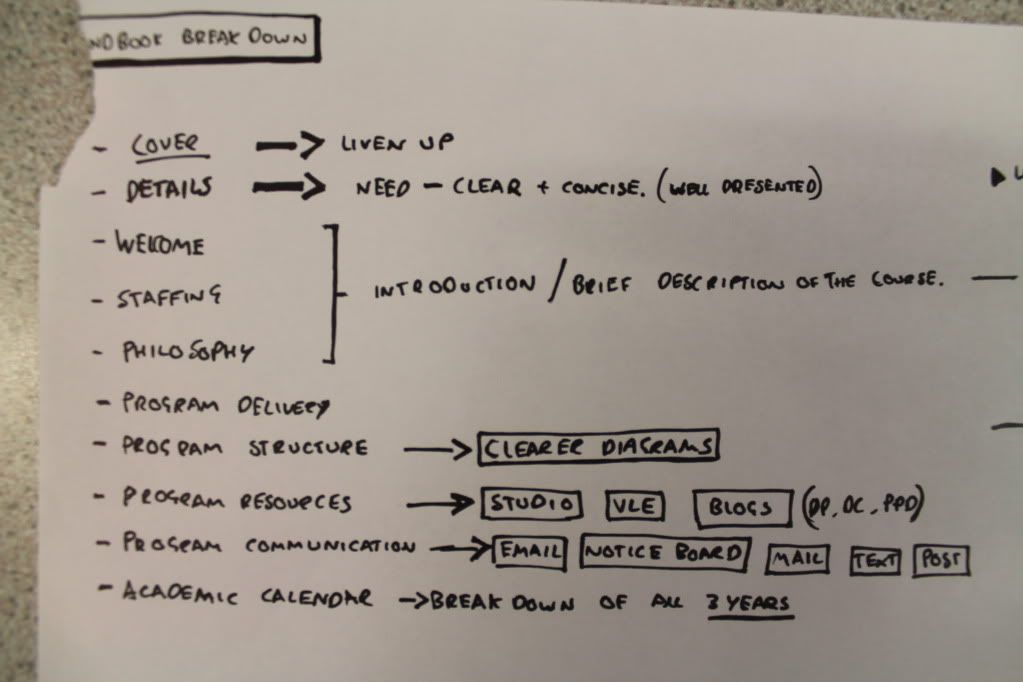 NDBOOK BREAK DOWN
- COVER → LIVEN UP
- DETAILS → NEED - CLEAR + CONCISE. (WELL PRESENTED)
- WELCOME
INTRODUCTION / BRIEF DESCRIPTION OF THE COURSE. —
- STAFFING
- PHILOSOPHY
- PROGRAM DELIVERY
- PROGRAM STRUCTURE → CLEARER DIAGRAMS
- PROGRAM RESOURCES → STUDIO VLE BLOGS (DP, DC, PPD)
- PROGRAM COMMUNICATION → EMAIL NOTICE BOARD MAIL TEXT POST
- ACADEMIC CALENDAR → BREAK DOWN OF ALL 3 YEARS